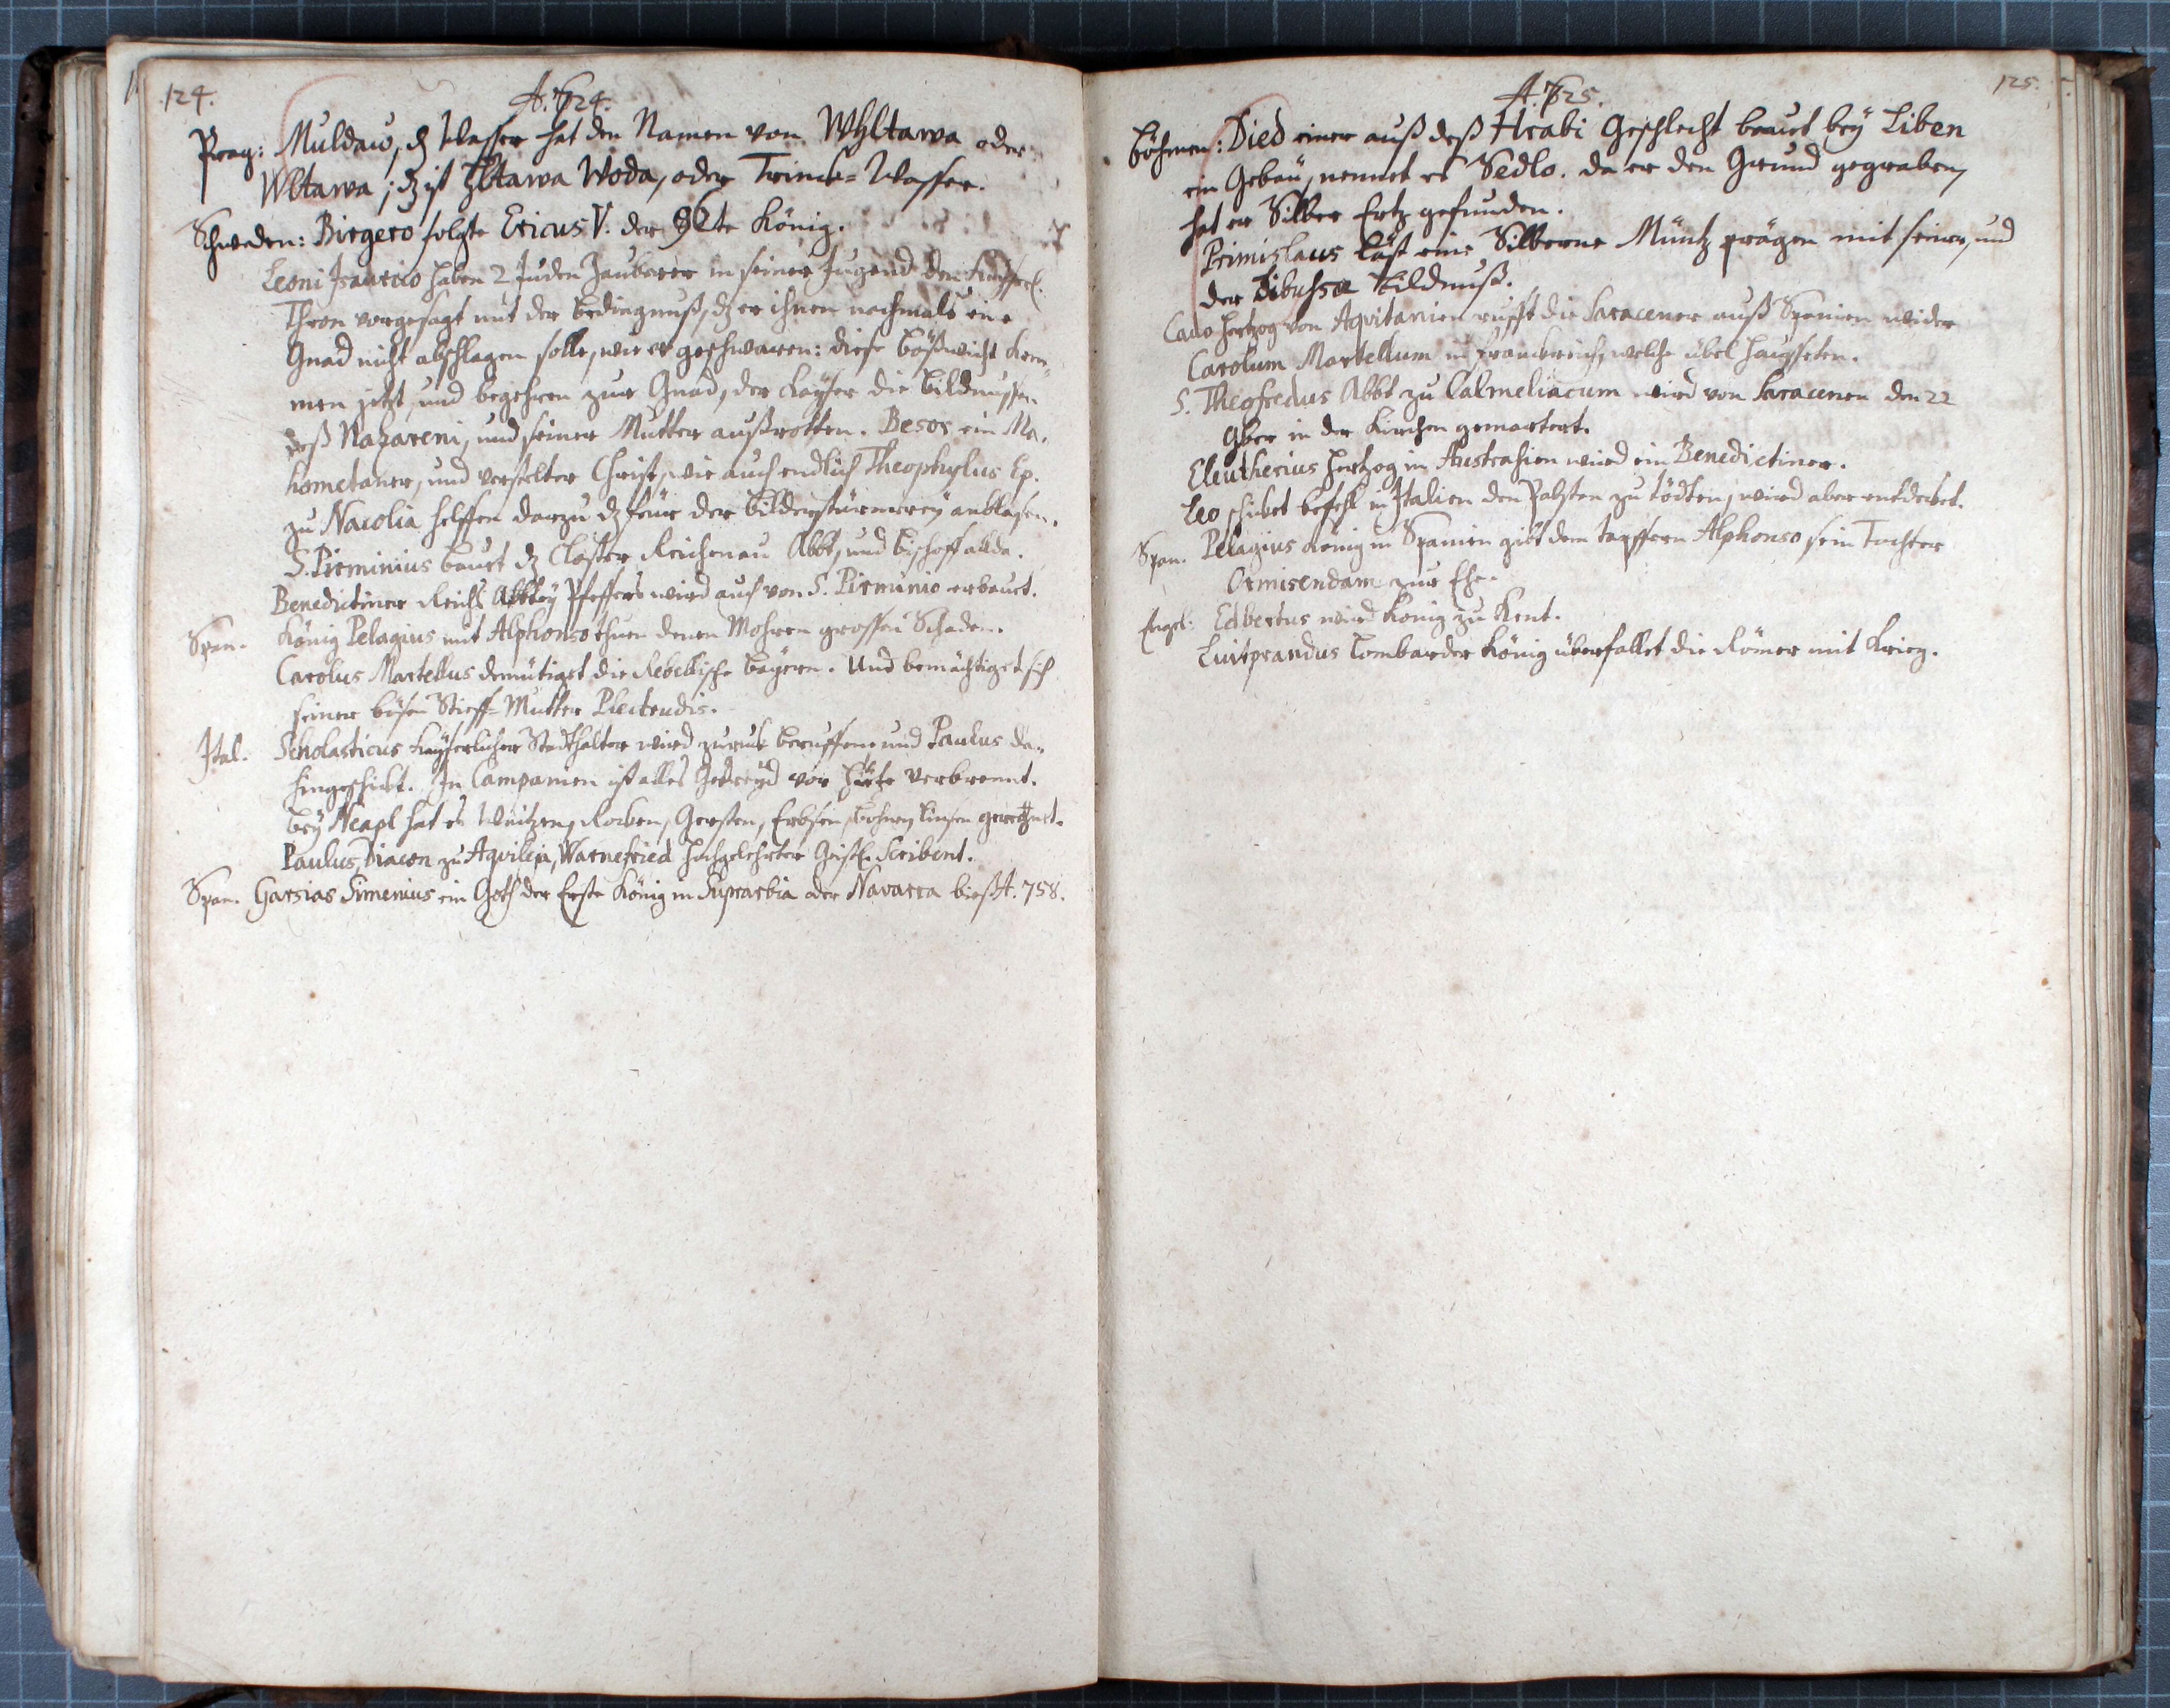 124.
A. 724.
Prag: Muldaw, dz Wasser hat den Namen von Whltawa oder
Wltawa; dz ist Wltawa Woda, oder Trinck-Wasser.
Schweden: Birgero folgte Ericus V. der 96te König.
Leoni Isaurico haben 2 Juden Zauberer in seiner Jugend den Kaysserl.
Thron vorgesagt mit der Bedingnuß, dz er ihnen nachmals eine
Gnad nicht abschlagen solle, wie er geschworen: diese bößwicht kom-
men jetzt, und begehren zur Gnad, der Kayser die Bildnussen
deß Nazareni, und seiner Mutter außrotten. Beser ein Ma-
hometaner, und verfelter Christ, wie auch endlich Theophylus Ep.
zu Nacolia helffen darzu dz feur der Bilderstürmerey anblasen.
S. Pirminius bauet dz Closter Reichenau Abbt, und Bischoff allda.
Benedictiner Reichs Abbtey Pfeffers wird auch von S. Pirminio erbauet.
Span. König Pelagius mit Alphonso thuen denen Mohren grossen Schaden.
Carolus Martellus demütiget die Rebellische Bayern. Und bemächtiget sich
seiner bösen Stieff-Mutter Plectrudis.
Ital. Scholasticus Kayserlicher Statthalter wird zuruck beruffen und Paulus da-
hingeschickt. In Campanien ist alles Getreyd vor Hitze verbrennt.
bey Neapl hat es Weitzen, Rocken, Gersten, Erbsen, Bohnen, Linsen geregnet.
Paulus, Diacon zu Aqvileja, Warnefried hochgelehrter Geistl. Scribent.
Span. Garsias Simenius ein Goth der Erste König in Suprarbia oder Navarra bieß A. 758.
125.
A. 725.
Böhmen: Died einer auß deß Hrabi Geschlecht bauet bey Liben
ein Gebäu, nennet es Sedlo. da er den Grund gegraben,
hat er Silber Ertz gefunden.
Primislaus läst eine Silberne Müntz prägen mit seiner, und
der Libussæ Bildnuß.
Hertzog von Aqvitanien rufft die Saracener auß Spanien wider
Carolum Martellum in Franckreich, welche übel hauseten.
S. Theofredus Abbt zu Calmeliacum wird von Saracenen den 22
9ber in der Kirchen gemartert.
Eleutherius Hertzog in Austrasien wird ein Benedictiner.
Leo schicket befehl in Italien den Pabsten zu tödten, wird aber entdecket.
Span. Pelagius König in Spanien gibt dem tapffern Alphonso sein Tochter
Ormisendam zur Ehe.
Engel: Edbertus wird König zu Kent.
Luitprandus Lombarder König überfallet die Römer mit Krieg.